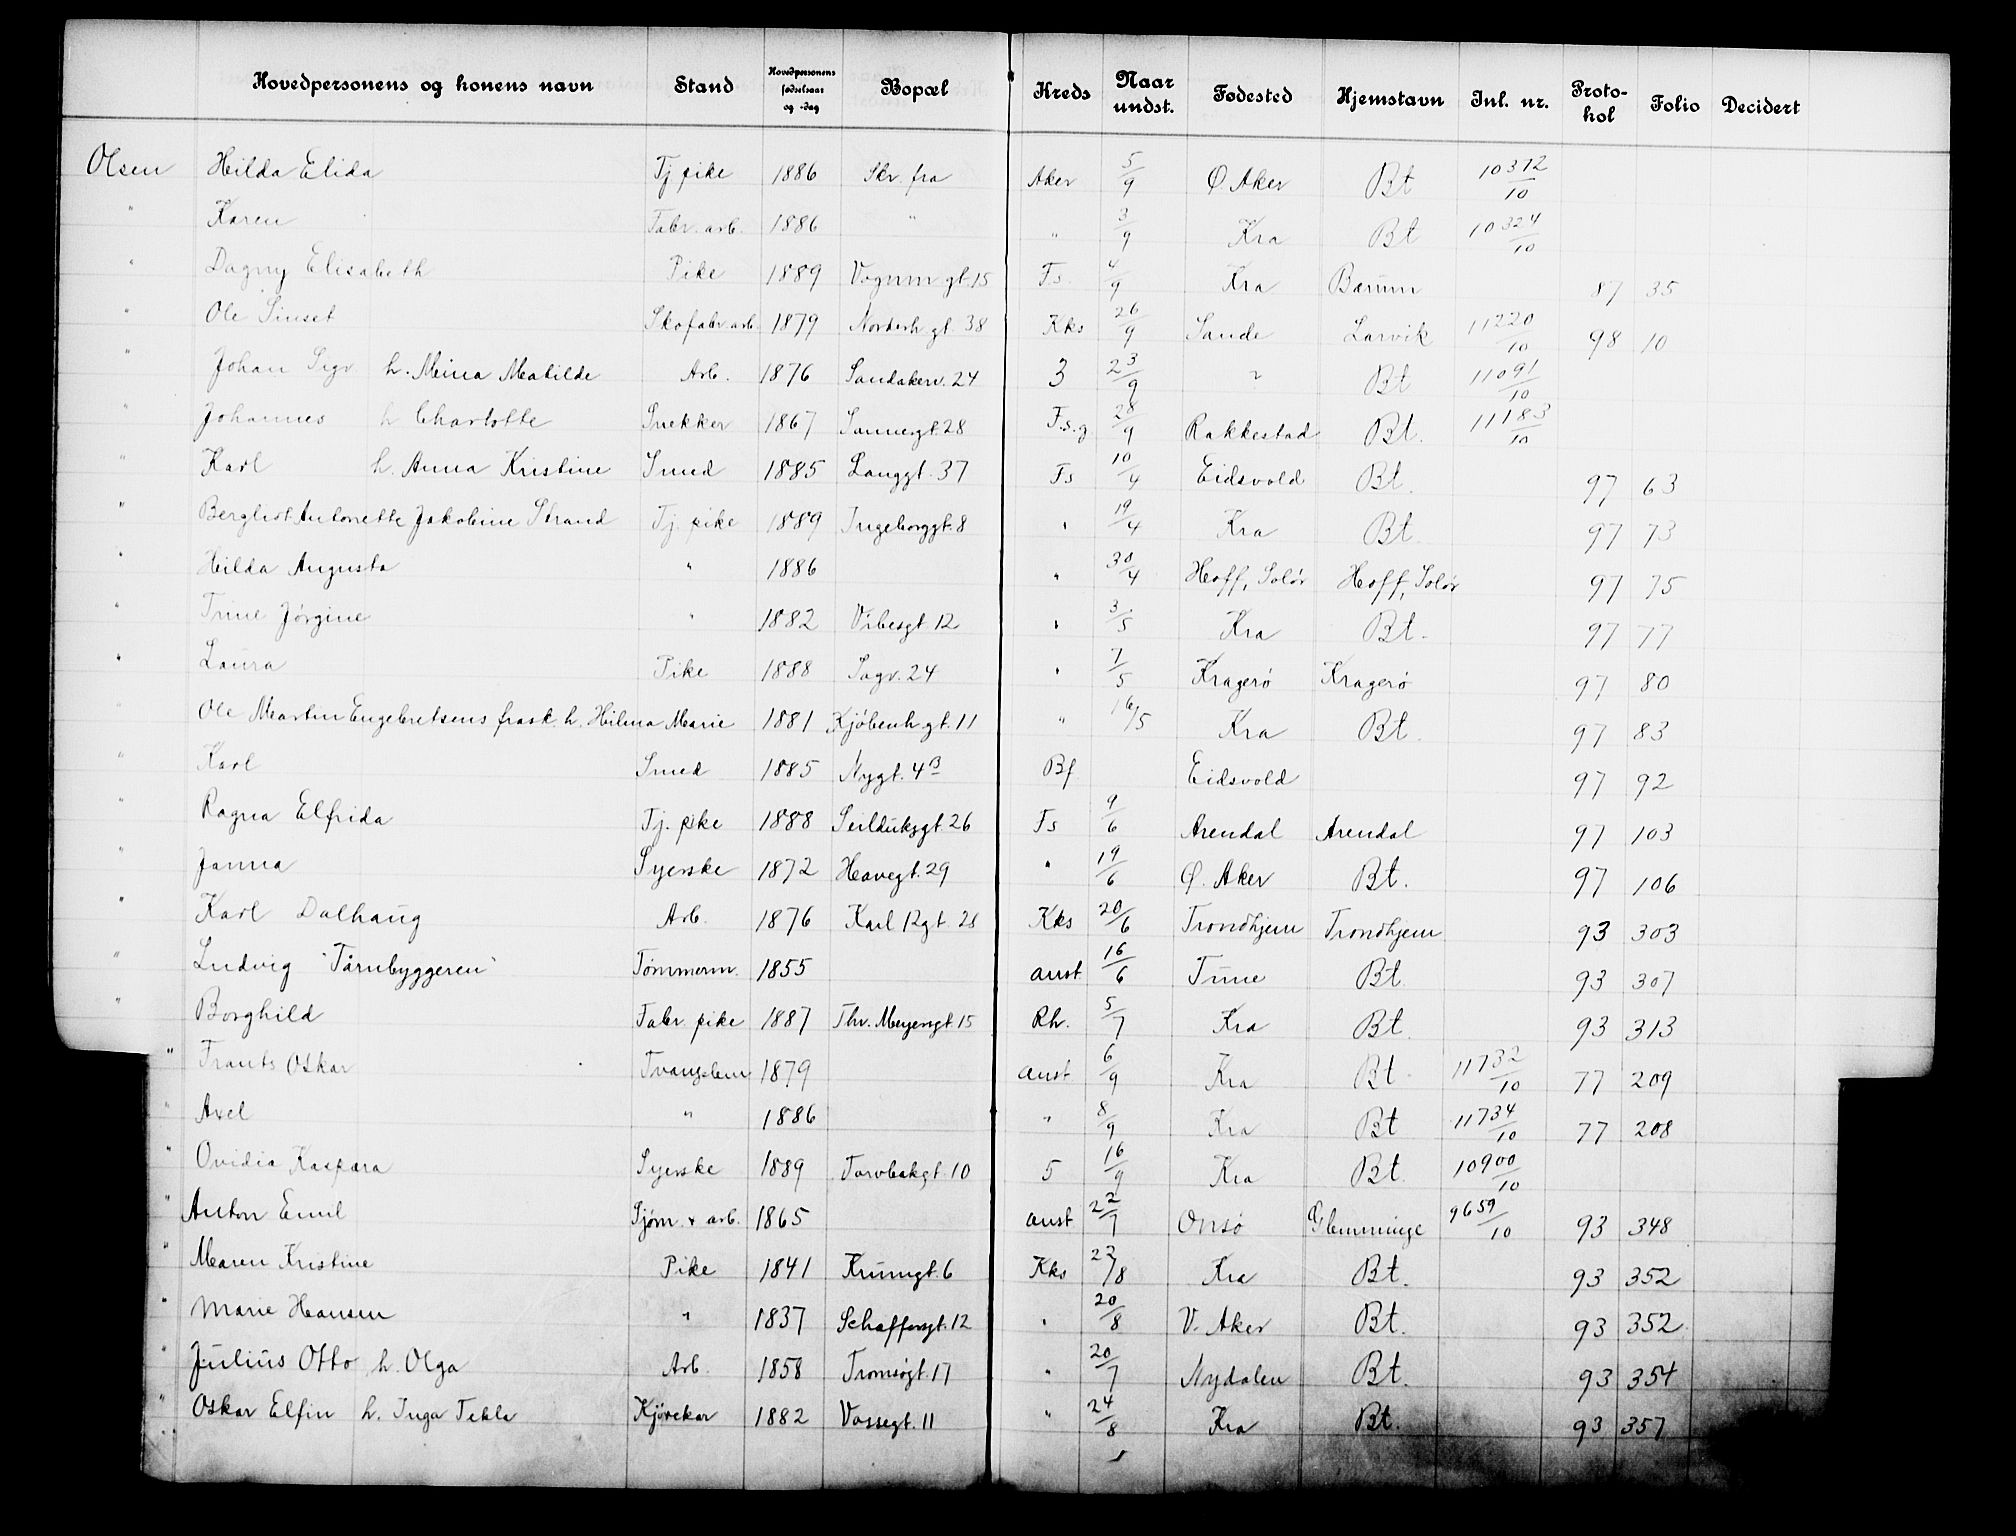 Hovedpersonens og konens navn Stand Hovedpersonens fødselsaar og -dag Bopæl Kreds Naar undst. Fødested Hjemstavn Inl. nr. Protokol Folio Decidert
Olsen Hilda Elida Tj pike 1886 Skr. fra Aker 5/9 Ø. Aker Bt 10372/10
" Karen Fabr. arb. 1886 " " 3/9 Kra Bt 10324/10
" Dagny Elisabeth Pike 1889 Vognm gt. 15 Fs. 4/9 Kra Bærum 87 35
" Ole Sinset Skofabr. arb. 1879 Norderh gt. 38 Kks 26/9 Sande Larvik 11220/10 98 10
" Johan Sigv h. Mina Matilde Arb. 1876 Sandakerv. 24 3 23/9 " Bt 11091/10
" Johannes h Charlotte Snekker 1867 Sannergt. 28 F.s.g 28/9 Rakkestad Bt. 11183/10
" Karl h. Anna Kristine Smed 1885 Langgt. 37 Fs 10/4 Eidsvold Bt. 97 63
" Bergliot Antonette Jakobine Strand Tj. pike 1889 Ingeborggt. 8 " 19/4 Kra Bt. 97 73
" Hilda Augusta " 1886 " 30/4 Hoff, Solør Hoff, Solør 97 75
" Trine Jørgine " 1882 Vibesgt. 12 " 3/5 Kra Bt. 97 77
" Laura Pike 1888 Sagv. 24 " 7/5 Kragerø Kragerø 97 80
" Ole Martin Engebretsens frask. h. Hilma Marie 1881 Kjøbenh. gt. 11 " 16/5 Kra Bt. 97 83
" Karl Smed 1885 Nygt. 4B Bf Eidsvold 97 92
" Ragna Elfrida Tj. pike 1888 Seilduksgt. 26 Fs 9/6 Arendal Arendal 97 103
" Janna Syerske 1872 Havegt. 29 " 19/6 Ø. Aker Bt. 97 106
" Karl Dalhaug Arb. 1876 Karl 12 gt. 28 Kks 20/6 Trondhjem Trondhjem 93 303
" Ludvig "Tårnbyggeren" Tømmerm. 1855 anst. 16/6 Tune Bt. 93 307
" Borghild Fabr. pike 1887 Thv. Meyersgt. 15 Rh. 5/7 Kra Bt. 93 313
" Frants Oskar Tvangslem 1879 anst 6/9 Kra Bt. 11732/10 77 209
" Axel " 1886 " 8/9 Kra Bt 11734/10 77 208
" Ovidia Kaspara Syerske 1889 Torvbakgt. 10 5 16/9 Kra Bt. 10900/10
" Anton Emil Sjøm. & arb. 1865 anst 22/7 Onsø Glemminge 9659/10 93 348
" Maren Kristine Pike 1841 Krumgt. 6 Kks 22/8 Kra Bt. 93 352
" Marie Hansen " 1837 Schaffersgt. 12 " 20/8 V. Aker Bt. 93 352
" Julius Otto h. Olga Arb. 1858 Tromsøgt. 17 " 20/7 Nydalen Bt. 93 354
" Oskar Elfin h. Inga Tekla Kjørekar 1882 Vossegt. 11 " 24/8 Kra Bt. 93 357